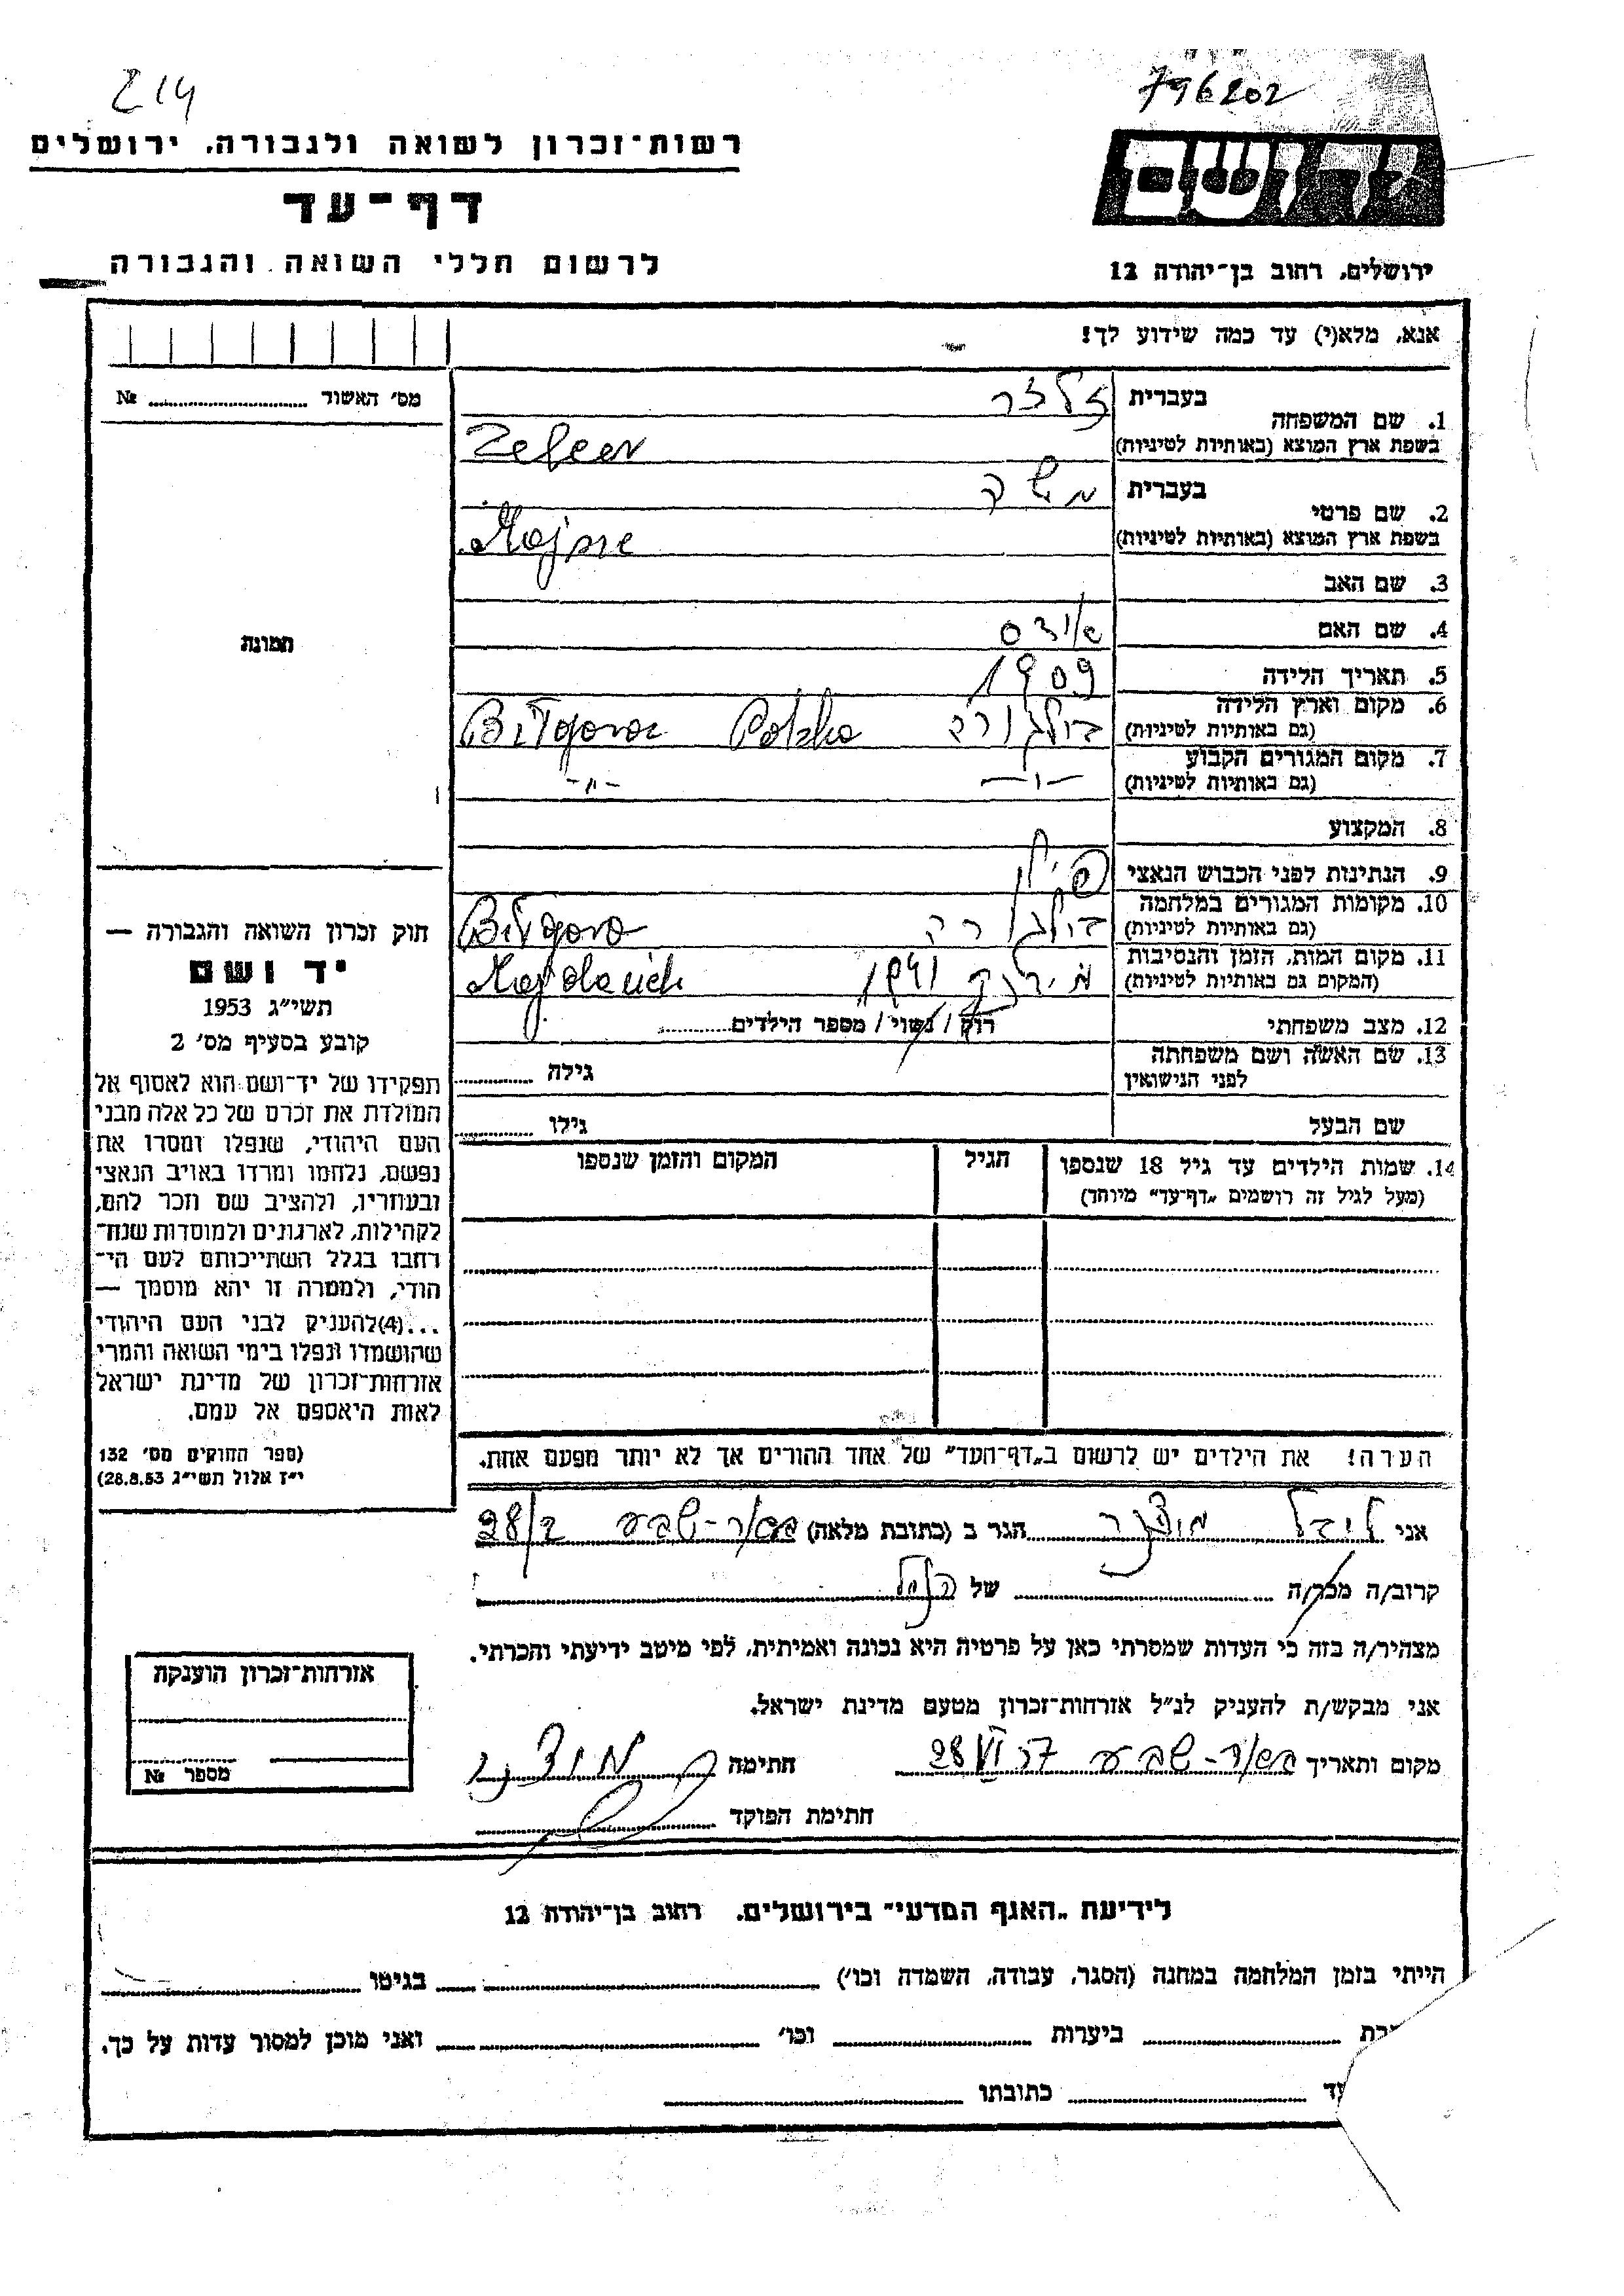 214
796202
רשות־זכרון לשואה ולגבורה. ירושלים
דף־עד
לרשום חללי השואה והגבורה
ידושם
ירושלים. רחוב בן־יהודה 12
אנא, מלא(י) עד כמה שידוע לך!
מס׳ האשור № 
1. שם המשפחה
בעברית
בשפת ארץ המוצא (באותיות לטיניות)
2. שם פרטי
בעברית משה
בשפת ארץ המוצא (באותיות לטיניות)
3. שם האב
4. שם האם
5. תאריך הלידה 1909
6. מקום וארץ הלידה
(גם באותיות לטיניות) Polska
7. מקום המגורים הקבוע
(גם באותיות לטיניות) -"- -"-
8. המקצוע
9. הנתינות לפני הכבוש הנאצי פולין
10. מקומות המגורים במלחמה
(גם באותיות לטיניות)
11. מקום המות, הזמן והנסיבות
(המקום גם באותיות לטיניות)
12. מצב משפחתי רוק / נשוי / מספר הילדים
13. שם האשה ושם משפחתה
לפני הנישואין גילה
שם הבעל גילו
14. שמות הילדים עד גיל 18 שנספו הגיל המקום והזמן שנספו
(מעל לגיל זה רושמים „דף־עד״ מיוחד)
הערה! את הילדים יש לרשום ב„דף־העד״ של אחד ההורים אך לא יותר מפעם אחת.
תמונה
חוק זכרון השואה והגבורה —
יד ושם
תשי״ג 1953
קובע בסעיף מס׳ 2
תפקידו של יד־ושם הוא לאסוף אל
המולדת את זכרם של כל אלה מבני
העם היהודי, שנפלו ומסרו את
נפשם, נלחמו ומרדו באויב הנאצי
ובעוזריו, ולהציב שם וזכר להם,
לקהילות, לארגונים ולמוסדות שנח־
רחבו בגלל השתייכותם לעם הי־
הודי, ולמטרה זו יהא מוסמך —
...(4)להעניק לבני העם היהודי
שהושמדו ונפלו בימי השואה והמרי
אזרחות־זכרון של מדינת ישראל
לאות היאספם אל עמם.
(ספר החוקים מס׳ 132
י״ז אלול תשי״ג 28.8.53)
אני הגר ב (כתובת מלאה) באר-שבע
קרוב/ה מכר/ה של הנ״ל
מצהיר/ה בזה כי העדות שמסרתי כאן על פרטיה היא נכונה ואמיתית, לפי מיטב ידיעתי והכרתי.
אני מבקש/ת להעניק לנ״ל אזרחות־זכרון מטעם מדינת ישראל.
מקום ותאריך באר-שבע 28 VI 57 חתימה
חתימת הפוקד
אזרחות־זכרון הוענקה
מספר №
לידיעת „האגף המדעי״ בירושלים. רחוב בן־יהודה 12
הייתי בזמן המלחמה במחנה (הסגר, עבודה, השמדה וכו׳) בגיטו
ביערות וכו׳ ואני מוכן למסור עדות על כך.
כתובתו